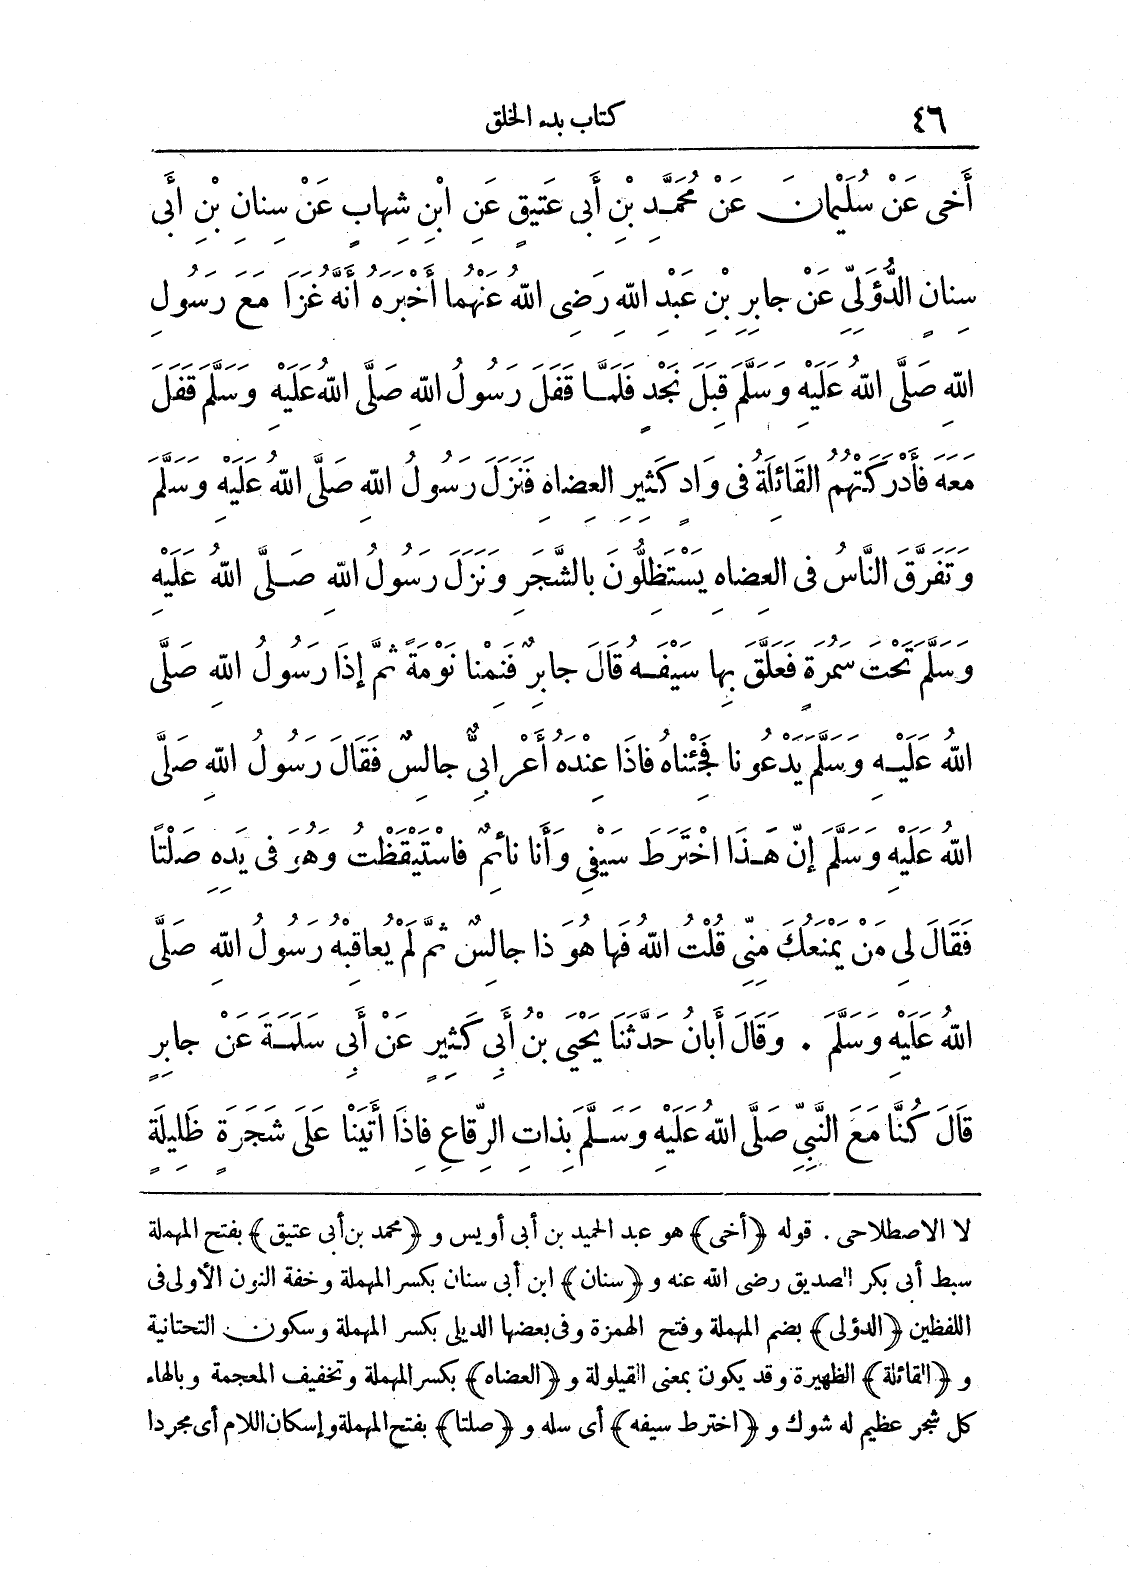 ٤٦ كتاب بدء الخلق
أَخِى عَنْ سُلَيْمَانَ عَنْ مُحَمَّدِ بْنِ أَبِى عَتِيقٍ عَنِ ابْنِ شِهَابٍ عَنْ سِنَانِ بْنِ أَبِى
سِنَانٍ الدُّؤَلِيِّ عَنْ جَابِرِ بْنِ عَبْدِ اللهِ رَضِىَ اللهُ عَنْهُمَا أَخْبَرَهُ أَنَّهُ غَزَا مَعَ رَسُولِ
اللهِ صَلَّى اللهُ عَلَيْهِ وَسَلَّمَ قِبَلَ نَجْدٍ فَلَمَّا قَفَلَ رَسُولُ اللهِ صَلَّى اللهُ عَلَيْهِ وَسَلَّمَ قَفَلَ
مَعَهُ فَأَدْرَكَتْهُمُ القَائِلَةُ فى وَادٍ كَثِيرِ العِضَاهِ فَنَزَلَ رَسُولُ اللهِ صَلَّى اللهُ عَلَيْهِ وَسَلَّمَ
وَتَفَرَّقَ النَّاسُ فى العِضَاهِ يَسْتَظِلُّونَ بِالشَّجَرِ وَنَزَلَ رَسُولُ اللهِ صَلَّى اللهُ عَلَيْهِ
وَسَلَّمَ تَحْتَ سَمُرَةٍ فَعَلَّقَ بِهَا سَيْفَهُ قَالَ جَابِرٌ فَنِمْنَا نَوْمَةً ثُمَّ إِذَا رَسُولُ اللهِ صَلَّى
اللهُ عَلَيْهِ وَسَلَّمَ يَدْعُونَا فَجِئْنَاهُ فَاذَا عِنْدَهُ أَعْرَابِىٌّ جَالِسٌ فَقَالَ رَسُولُ اللهِ صَلَّى
اللهُ عَلَيْهِ وَسَلَّمَ إِنَّ هَذَا اخْتَرَطَ سَيْفِى وَأَنَا نَائِمٌ فَاسْتَيْقَظْتُ وَهُوَ فى يَدِهِ صَلْتًا
فَقَالَ لِى مَنْ يَمْنَعُكَ مِنِّى قُلْتُ اللهُ فَهَا هُوَ ذَا جَالِسٌ ثُمَّ لَمْ يُعَاقِبْهُ رَسُولُ اللهِ صَلَّى
اللهُ عَلَيْهِ وَسَلَّمَ . وَقَالَ أَبَانُ حَدَّثَنَا يَحْيَى بْنُ أَبِى كَثِيرٍ عَنْ أَبِى سَلَمَةَ عَنْ جَابِرٍ
قَالَ كُنَّا مَعَ النَّبِيِّ صَلَّى اللهُ عَلَيْهِ وَسَلَّمَ بِذَاتِ الرِّقَاعِ فَاِذَا أَتَيْنَا عَلَى شَجَرَةٍ ظَلِيلَةٍ
لا الاصطلاحى . قوله ﴿أخى﴾ هو عبد الحميد بن أبى أويس و ﴿محمد بن أبى عتيق﴾ بفتح المهملة
سبط أبى بكر الصديق رضى الله عنه و ﴿سنان﴾ ابن أبى سنان بكسر المهملة وخفة النون الأولى فى
اللفظين ﴿الدؤلى﴾ بضم المهملة وفتح الهمزة وفى بعضها الديلى بكسر المهملة وسكون التحتانية
و ﴿القائلة﴾ الظهيرة وقد يكون بمعنى القيلولة و ﴿العضاه﴾ بكسر المهملة وتخفيف المعجمة وبالهاء
كل شجر عظيم له شوك و ﴿اخترط سيفه﴾ أى سله و ﴿صلتا﴾ بفتح المهملة وإسكان اللام أى مجردا